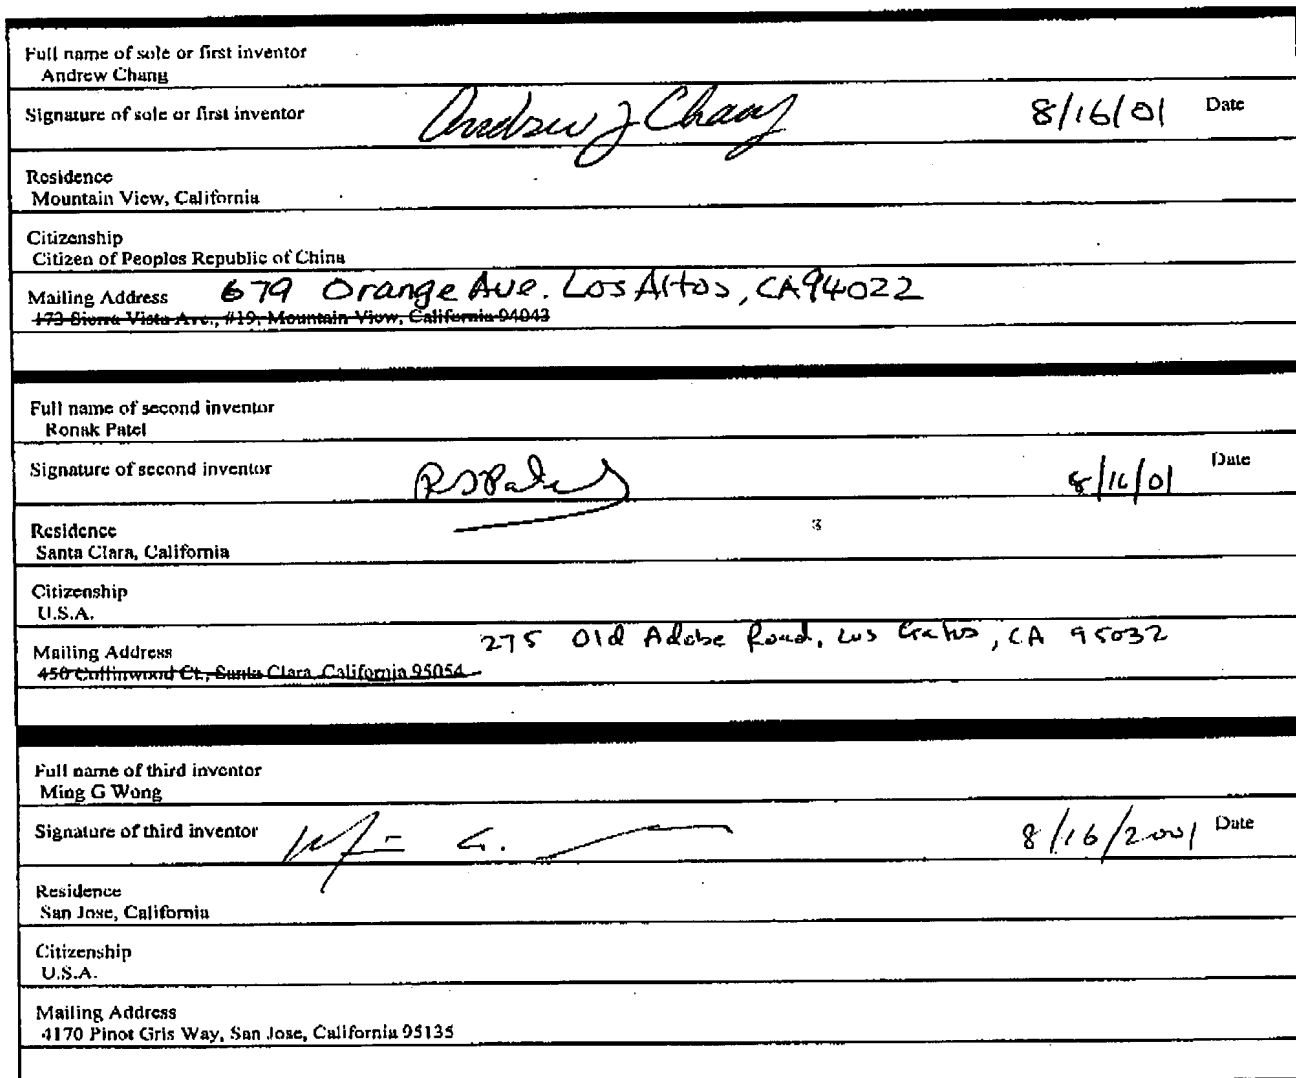 Full name of sole or first inventor
Andrew Chang
Signature of sole or first inventor Andrew J Chang 8/16/01 Date
Residence
Mountain View, California
Citizenship
Citizen of Peoples Republic of China
Mailing Address 679 Orange Ave. Los Altos, CA 94022
173 Sierra Vista Ave., #19, Mountain View, California 94043
Full name of second inventor
Ronak Patel
Signature of second inventor RSPatel 8/16/01 Date
Residence
Santa Clara, California
Citizenship
U.S.A.
275 Old Adobe Road, Los Gatos, CA 95032
Mailing Address
450 Clara, California 95054
Full name of third inventor
Ming G Wong
Signature of third inventor G. 8/16/2001 Date
Residence
San Jose, California
Citizenship
U.S.A.
Mailing Address
4170 Pinot Gris Way, San Jose, California 95135